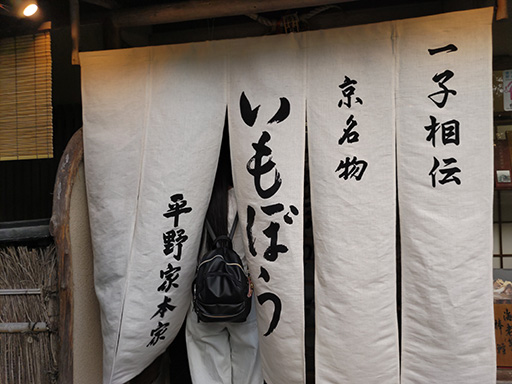 一子相伝
京名物
いもぼう
平野家本家